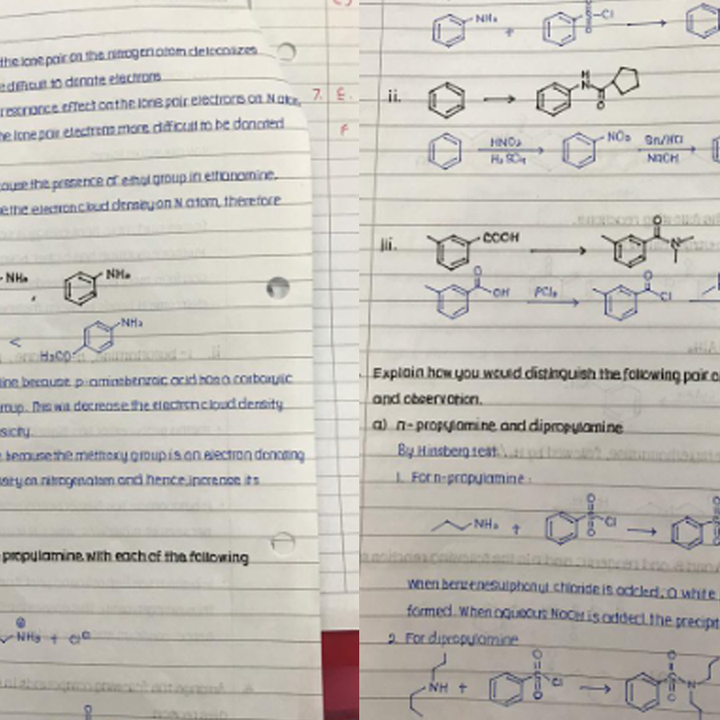 the lone pair on the nitrogen atom delocalizes
e difficult to donate electrons
resonance effect on the lone pair electrons on N atom,
he lone pair electrons more difficult to be donated
ause the presence of ethyl group in ethanamine,
e the electron cloud density on N atom, therefore
NH₂ , NH₂
< NH₂
H₃CO
ine because p-aminobenzoic acid has a carboxylic
roup. This will decrease the electron cloud density
sicity.
because the methoxy group is an electron donating
sity on nitrogen atom and hence, increase its
propylamine with each of the following
⊕
NH₃ + Cl⊖
7. E.
F
NH₂ + S Cl →
O
ii. → H N C O
HNO₃ NO₂ Sn/HCl
H₂SO₄ NaOH
iii. COOH → O C N
O C OH PCl₅ O C Cl
Explain how you would distinguish the following pair o
and observation.
a) n-propylamine and dipropylamine
By Hinsberg test,
1. For n-propylamine:
NH₂ + O S O Cl → O S O
When benzenesulphonyl chloride is added, a white
formed. When aqueous NaOH is added, the precipit
2. For dipropylamine
NH + O S O Cl → O S O N